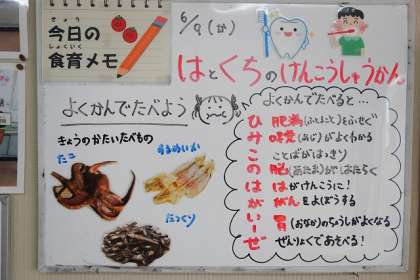 きょう
今日の
しょくいく
食育メモ
6/9(か)
はとくちのけんこうしゅうかん
よくかんでたべよう
きょうのかたいたべもの
たこ
するめいか
たつくり
よくかんでたべると…
ひ 肥満(ふとること)をふせぐ
み 味覚(あじ)がよくわかる
こ ことばがはっきり
の 脳(あたま)がはたらく
は はがけんこうに!
が がんをよぼうする
いー 胃(おなか)のちょうしがよくなる
ぜ ぜんりょくであそべる!